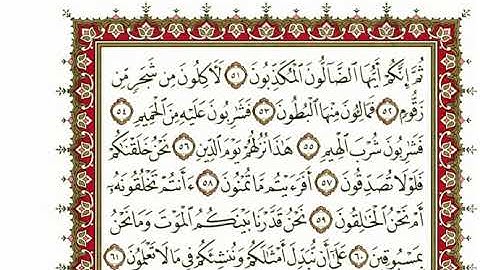 ثُمَّ إِنَّكُمْ أَيُّهَا ٱلضَّآلُّونَ ٱلْمُكَذِّبُونَ ٥١ لَـَٔاكِلُونَ مِن شَجَرٍ مِّن
زَقُّومٍ ٥٢ فَمَالِـُٔونَ مِنْهَا ٱلْبُطُونَ ٥٣ فَشَٰرِبُونَ عَلَيْهِ مِنَ ٱلْحَمِيمِ ٥٤
فَشَٰرِبُونَ شُرْبَ ٱلْهِيمِ ٥٥ هَٰذَا نُزُلُهُمْ يَوْمَ ٱلدِّينِ ٥٦ نَحْنُ خَلَقْنَٰكُمْ
فَلَوْلَا تُصَدِّقُونَ ٥٧ أَفَرَءَيْتُم مَّا تُمْنُونَ ٥٨ ءَأَنتُمْ تَخْلُقُونَهُۥٓ
أَمْ نَحْنُ ٱلْخَٰلِقُونَ ٥٩ نَحْنُ قَدَّرْنَا بَيْنَكُمُ ٱلْمَوْتَ وَمَا نَحْنُ
بِمَسْبُوقِينَ ٦٠ عَلَىٰٓ أَن نُّبَدِّلَ أَمْثَٰلَكُمْ وَنُنشِئَكُمْ فِى مَا لَا تَعْلَمُونَ ٦١